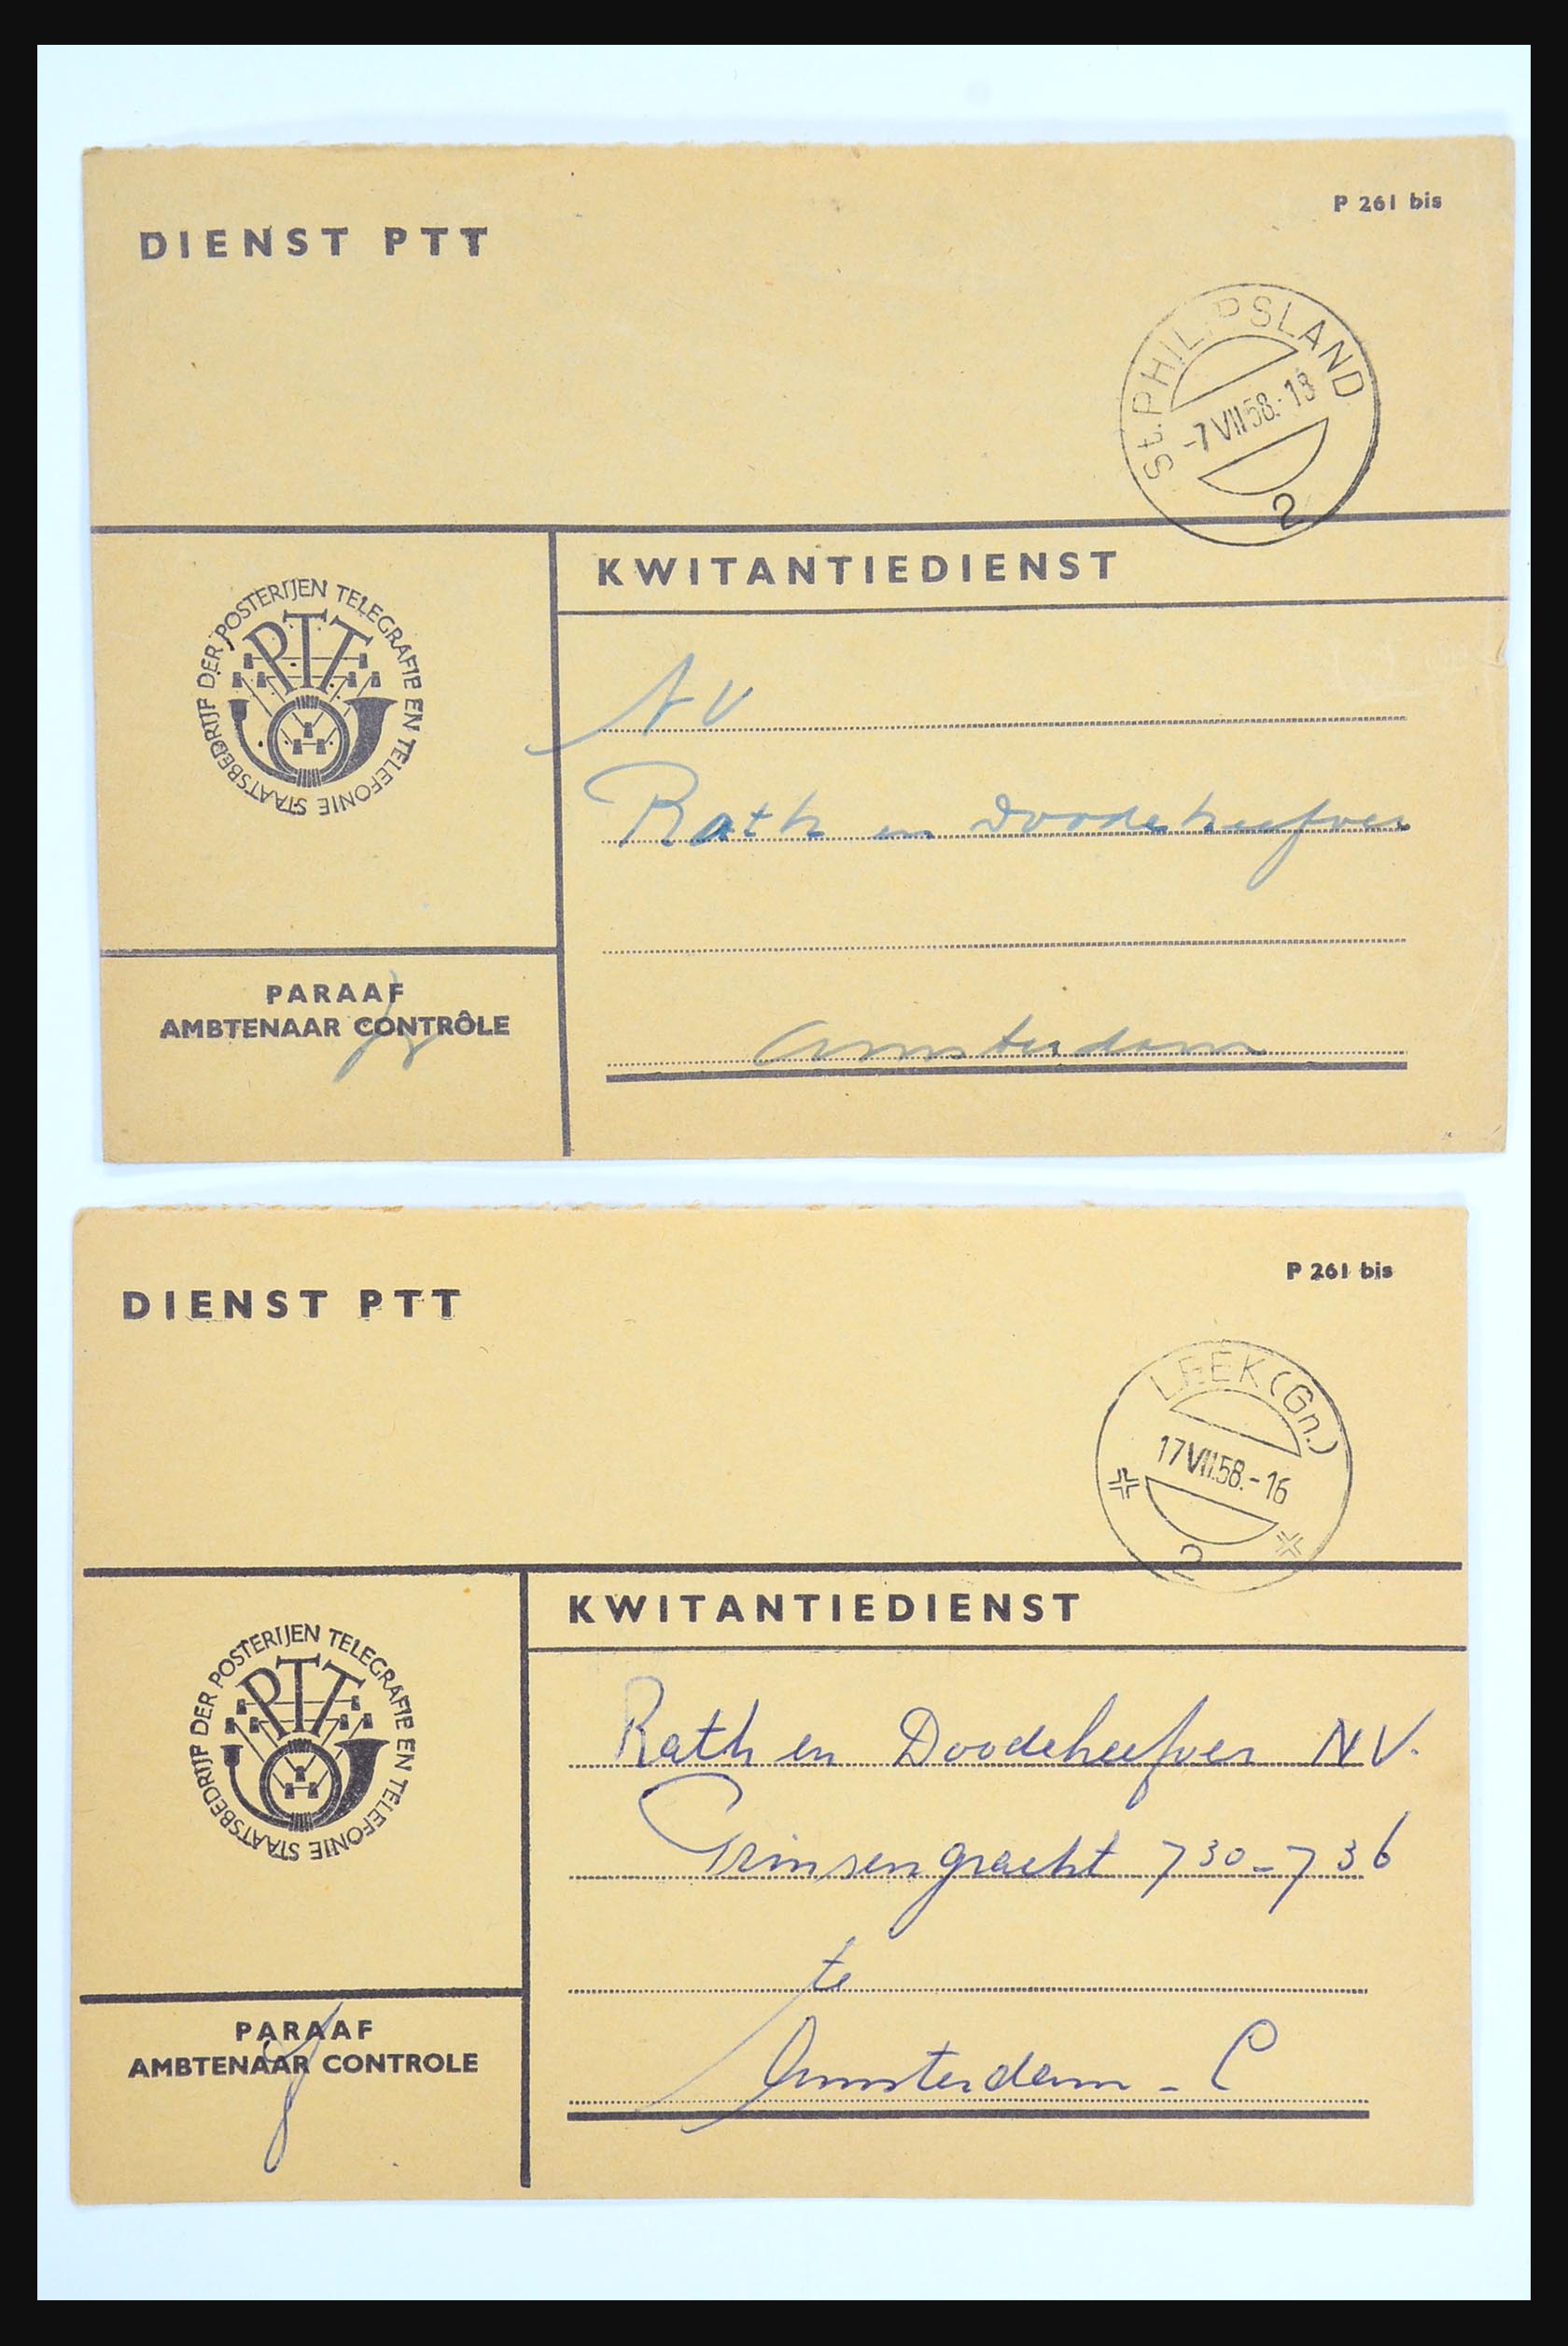 DIENST PTT
P 261 bis
St. PHILIPSLAND
-7 VII 58.-18
2
KWITANTIEDIENST
STAATSBEDRIJF DER POSTERIJEN TELEGRAFIE EN TELEFONIE
PTT
NV
Rath en Doodeheefver
Amsterdam
PARAAF
AMBTENAAR CONTRÔLE
DIENST PTT
P 261 bis
LEEK (Gn.)
17 VII.58.-16
2
KWITANTIEDIENST
STAATSBEDRIJF DER POSTERIJEN TELEGRAFIE EN TELEFONIE
PTT
Rath en Doodeheefver NV.
Prinsengracht 730-736
te
Amsterdam - C
PARAAF
AMBTENAAR CONTROLE